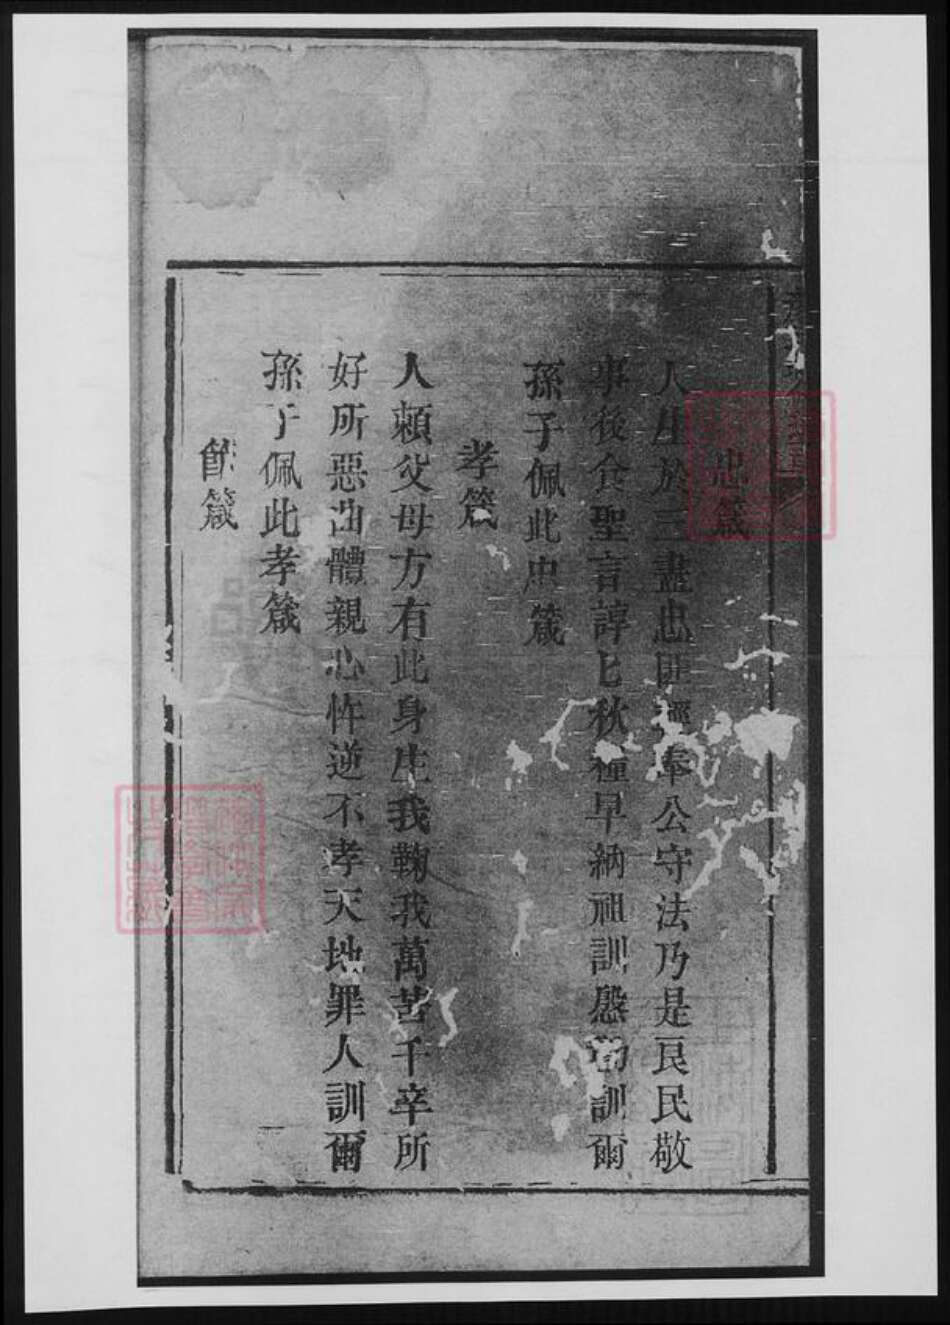 忠箴
人生於三盡忠匪輕奉公守法乃是良民敬
事後食聖言諄七秋種早納祖訓慇懃訓爾
孫子佩此忠箴
孝箴
人賴父母方有此身生我鞠我萬苦千辛所
好所惡曲體親心忤逆不孝天地罪人訓爾
孫子佩此孝箴
節箴